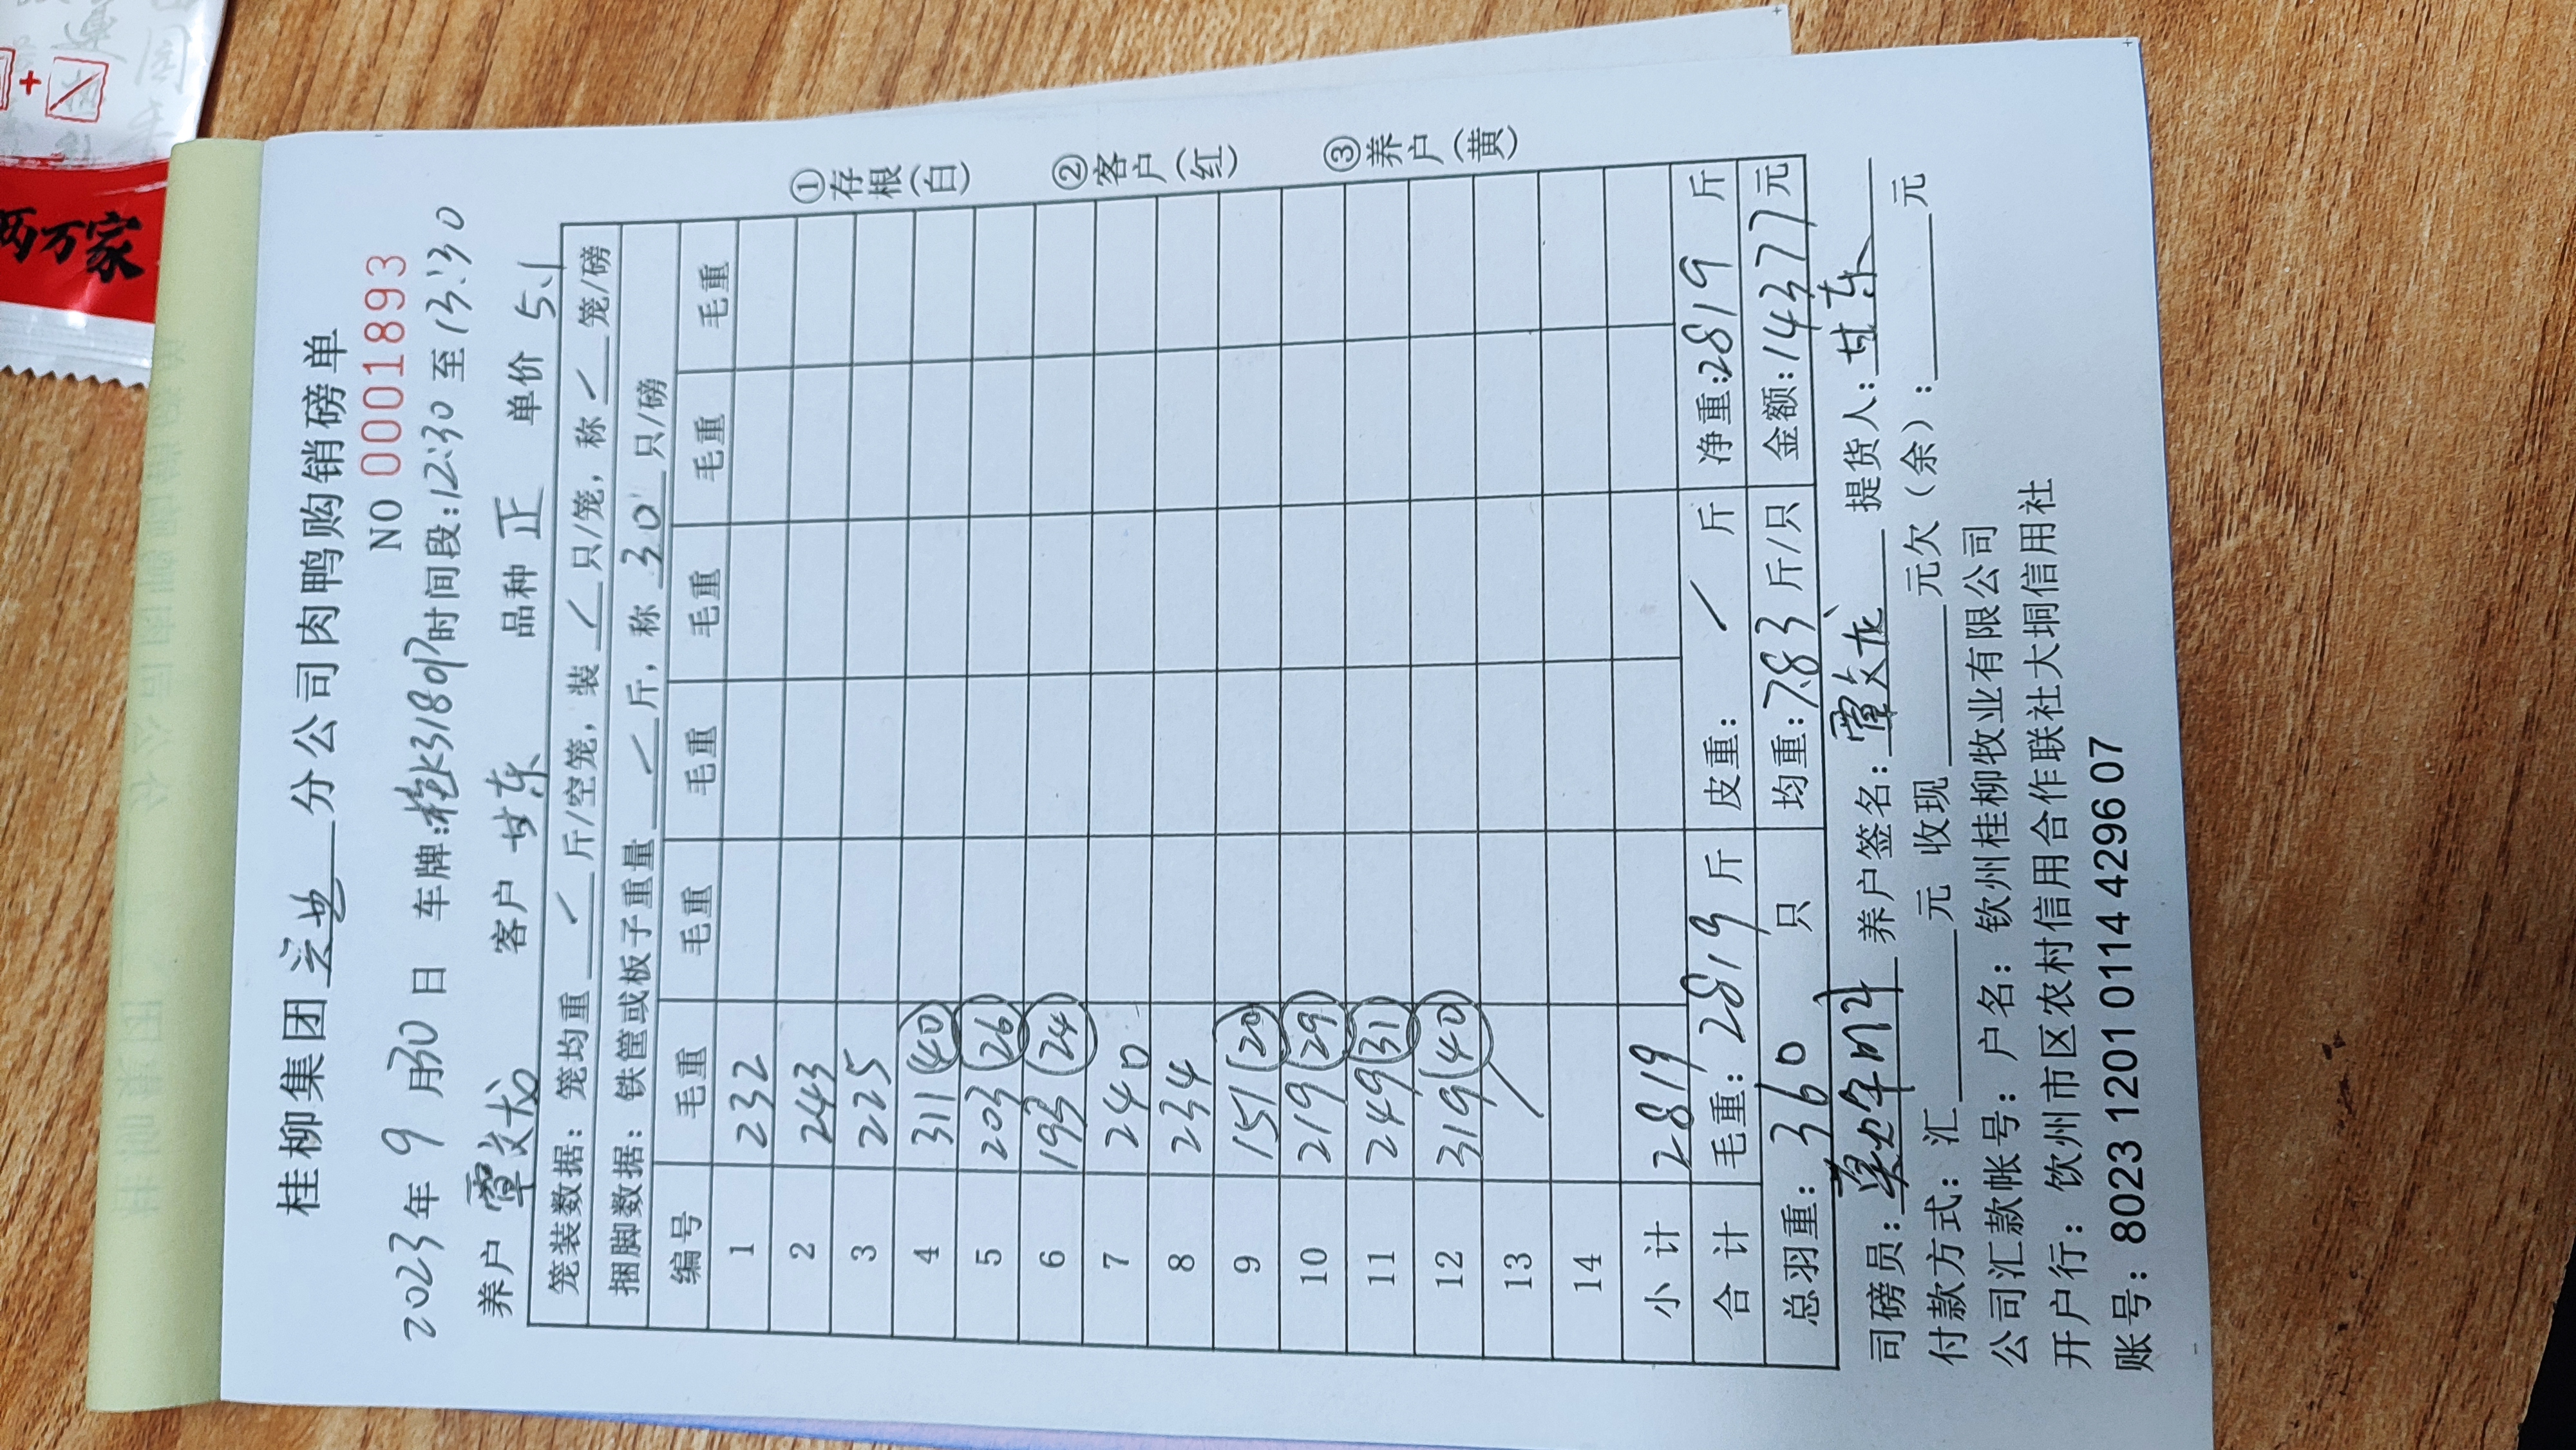 桂柳集团 分公司肉鸭购销磅单
NO 00001893
2023年 9 月30日 车牌:桂K31809 时间段:12:30至13:30
养户 覃文龙 客户 甘东 品种 正 单价 5.1
笼装数据:笼均重 / 斤/空笼,装 / 只/笼,称 / 笼/磅
捆脚数据:铁筐或板子重量 / 斤,称 30 只/磅
编号 毛重 毛重 毛重 毛重 毛重 毛重
1 232
2 243
3 225
4 311 (40)
5 203 (26)
6 193 (24)
7 240
8 234
9 151 (20)
10 219 (29)
11 249 (31)
12 319 (40)
13 /
14
小计 2819
合计 毛重:2819 斤 皮重: / 斤 净重:2819 斤
总羽重:360 只 均重:7.83 斤/只 金额:14377 元
司磅员: 养户签名:覃文龙 提货人:甘东
付款方式:汇 元 收现 元欠(余): 元
公司汇款帐号:户名:钦州桂柳牧业有限公司
开户行:钦州市区农村信用合作联社大垌信用社
账号:8023 1201 0114 4296 07
①存根(白)
②客户(红)
③养户(黄)
两万家